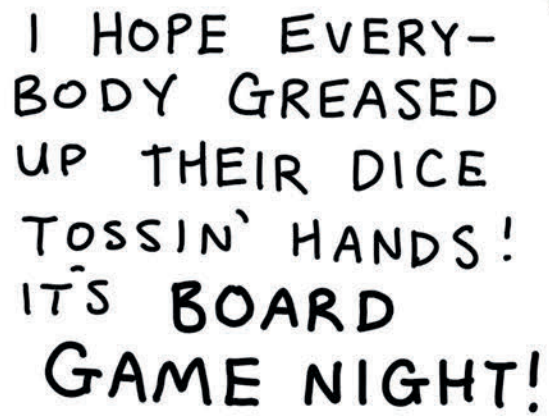 I HOPE EVERY-
BODY GREASED
UP THEIR DICE
TOSSIN' HANDS!
IT'S BOARD
GAME NIGHT!